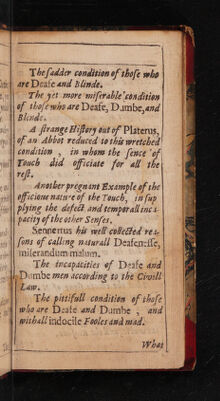 The sadder condition of those who
are Deafe and Blinde.
The yet more miserable condition
of those who are Deafe, Dumbe, and
Blinde.
A strange History out of Platerus,
of an Abbot reduced to this wretched
condition, in whom the sence of
Touch did officiate for all the
rest.
Another pregnant Example of the
officious nature of the Touch, in sup
plying the defect and temporall inca
pacity of the other Senses.
Sennertus his well collected rea
sons of calling naturall Deafenesse,
miserandum malum.
The incapacities of Deafe and
Dumbe men according to the Civill
Law.
The pittifull condition of those
who are Deafe and Dumbe, and
withall indocile Fooles and mad.
What